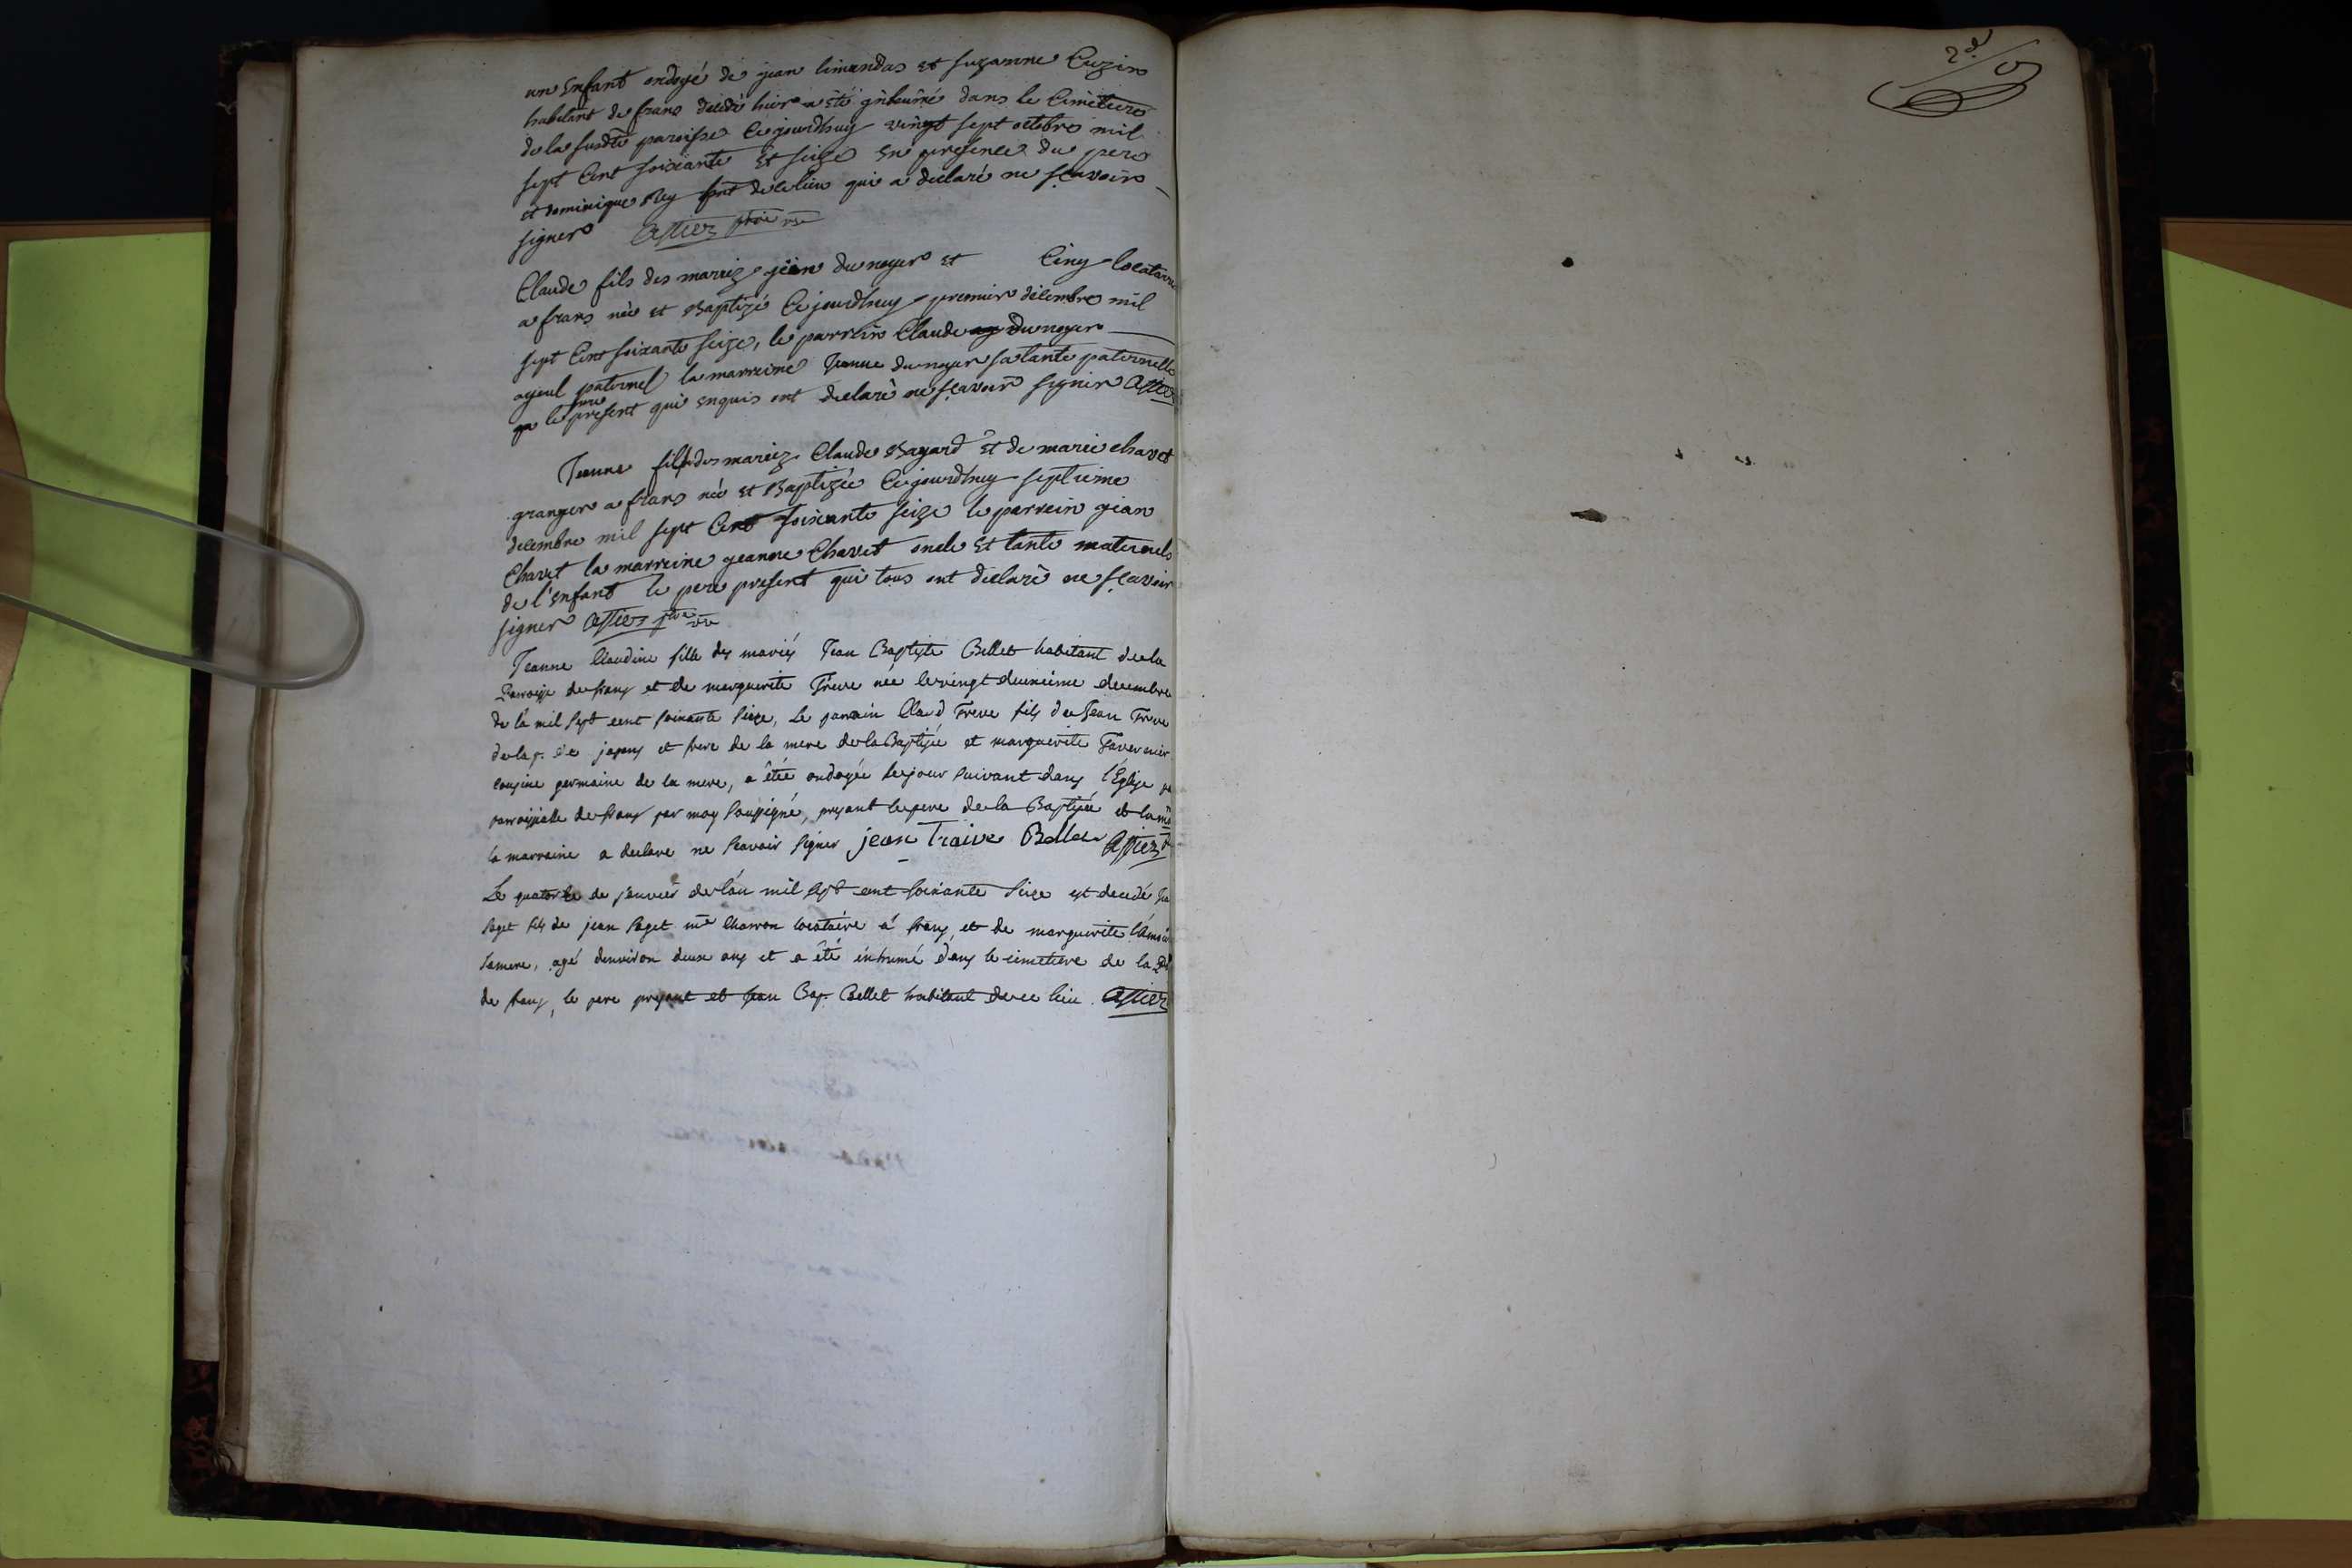 un Enfant ondoyé de jean limandas et suzanne Cuzin
habitant de frans décédé hier a été inhumé dans le Cimetiere
de la susdte paroisse Cejourdhuy vingt sept octobre mil
sept Cent soixante et seize En presence du pere
et dominique Rey de ce lieu qui a declaré ne sçavoir
signer Astier ptre
Claude fils des mariez jean dunoyer et Ciny locataire
a frans né et Baptizé Cejourdhuy premier décembre mil
sept Cent soixante seize, le parrein Claude Dunoyer
ayeul paternel la marreine Jeanne dunoyer sa tante paternelle
le pere present qui enquis ont declaré ne sçavoir signer Astier
Jeanne fille des mariez Claude Bayard et de marie chavet
granger a frans née et Baptizée Cejourdhuy septieme
decembre mil sept Cent soixante seize le parrein jean
Chavet la marreine jeanne Chavet oncle Et tante maternels
de l'enfant le pere present qui tous ont declaré ne sçavoir
signer Astier ptre
Jeanne Claudine fille des mariés Jean Baptiste Bellet habitant de la
Parroisse de frans et de marguerite Treve née le vingt deuxieme decembre
de l'a mil sept cent soixante seize, Le parrain Claud Treve fils de Jean Treve
de la p. de jasans et frere de la mere de la Baptisée et marguerite Tavernier
cousine germaine de la mere, a étée ondoyée le jour suivant dans l'Eglise
parroissialle de frans par moy soussigné, present le pere de la Baptisée et
la marraine a declare ne scavoir signer jean Traive Bellet Astier
Le quatorze de janvier de l'an mil sept cent soixante seize est decedé
saget fils de jean saget me Charron locataire a frans, et de marguerite
sa mere, agé d'environ deux ans et a été inhumé dans le cimetiere de la
de frans, le pere present et jean Bap. Bellet habitant de ce lieu. Astier
2d